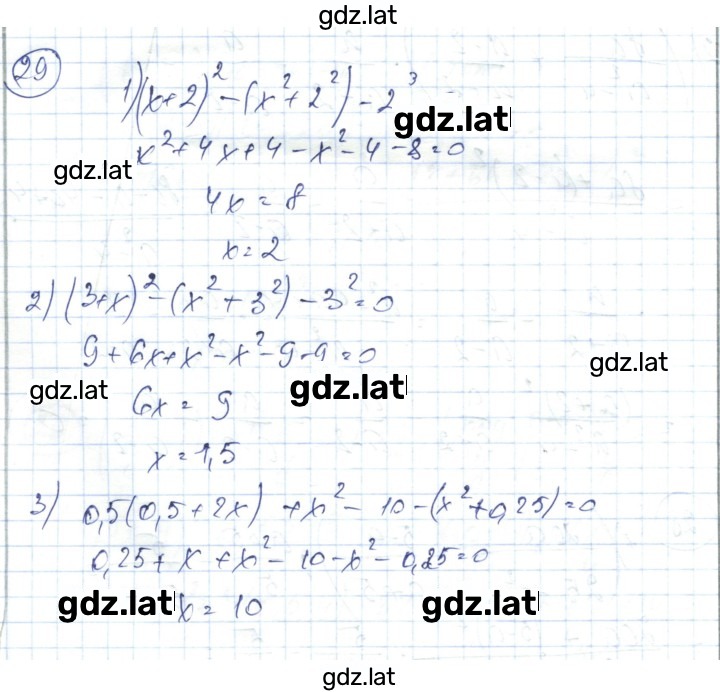 gdz.lat
29
1) (x+2)² - (x²+2²) - 2³
gdz.lat
x²+4x+4-x²-4-8=0
gdz.lat
4x = 8
x=2
2) (3+x)² - (x²+3²) - 3²=0
9+6x+x²-x²-9-9=0
gdz.lat
gdz.lat
gdz.lat
6x = 9
x = 1,5
3) 0,5(0,5+2x) +x² - 10 - (x²+0,25)=0
0,25+x+x²-10-x²-0,25=0
gdz.lat
x = 10
gdz.lat
gdz.lat